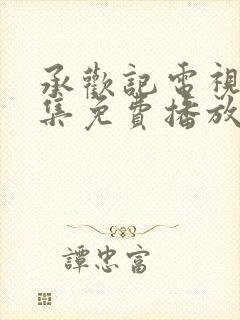 承歡記電視
集免費播放
譚忠富